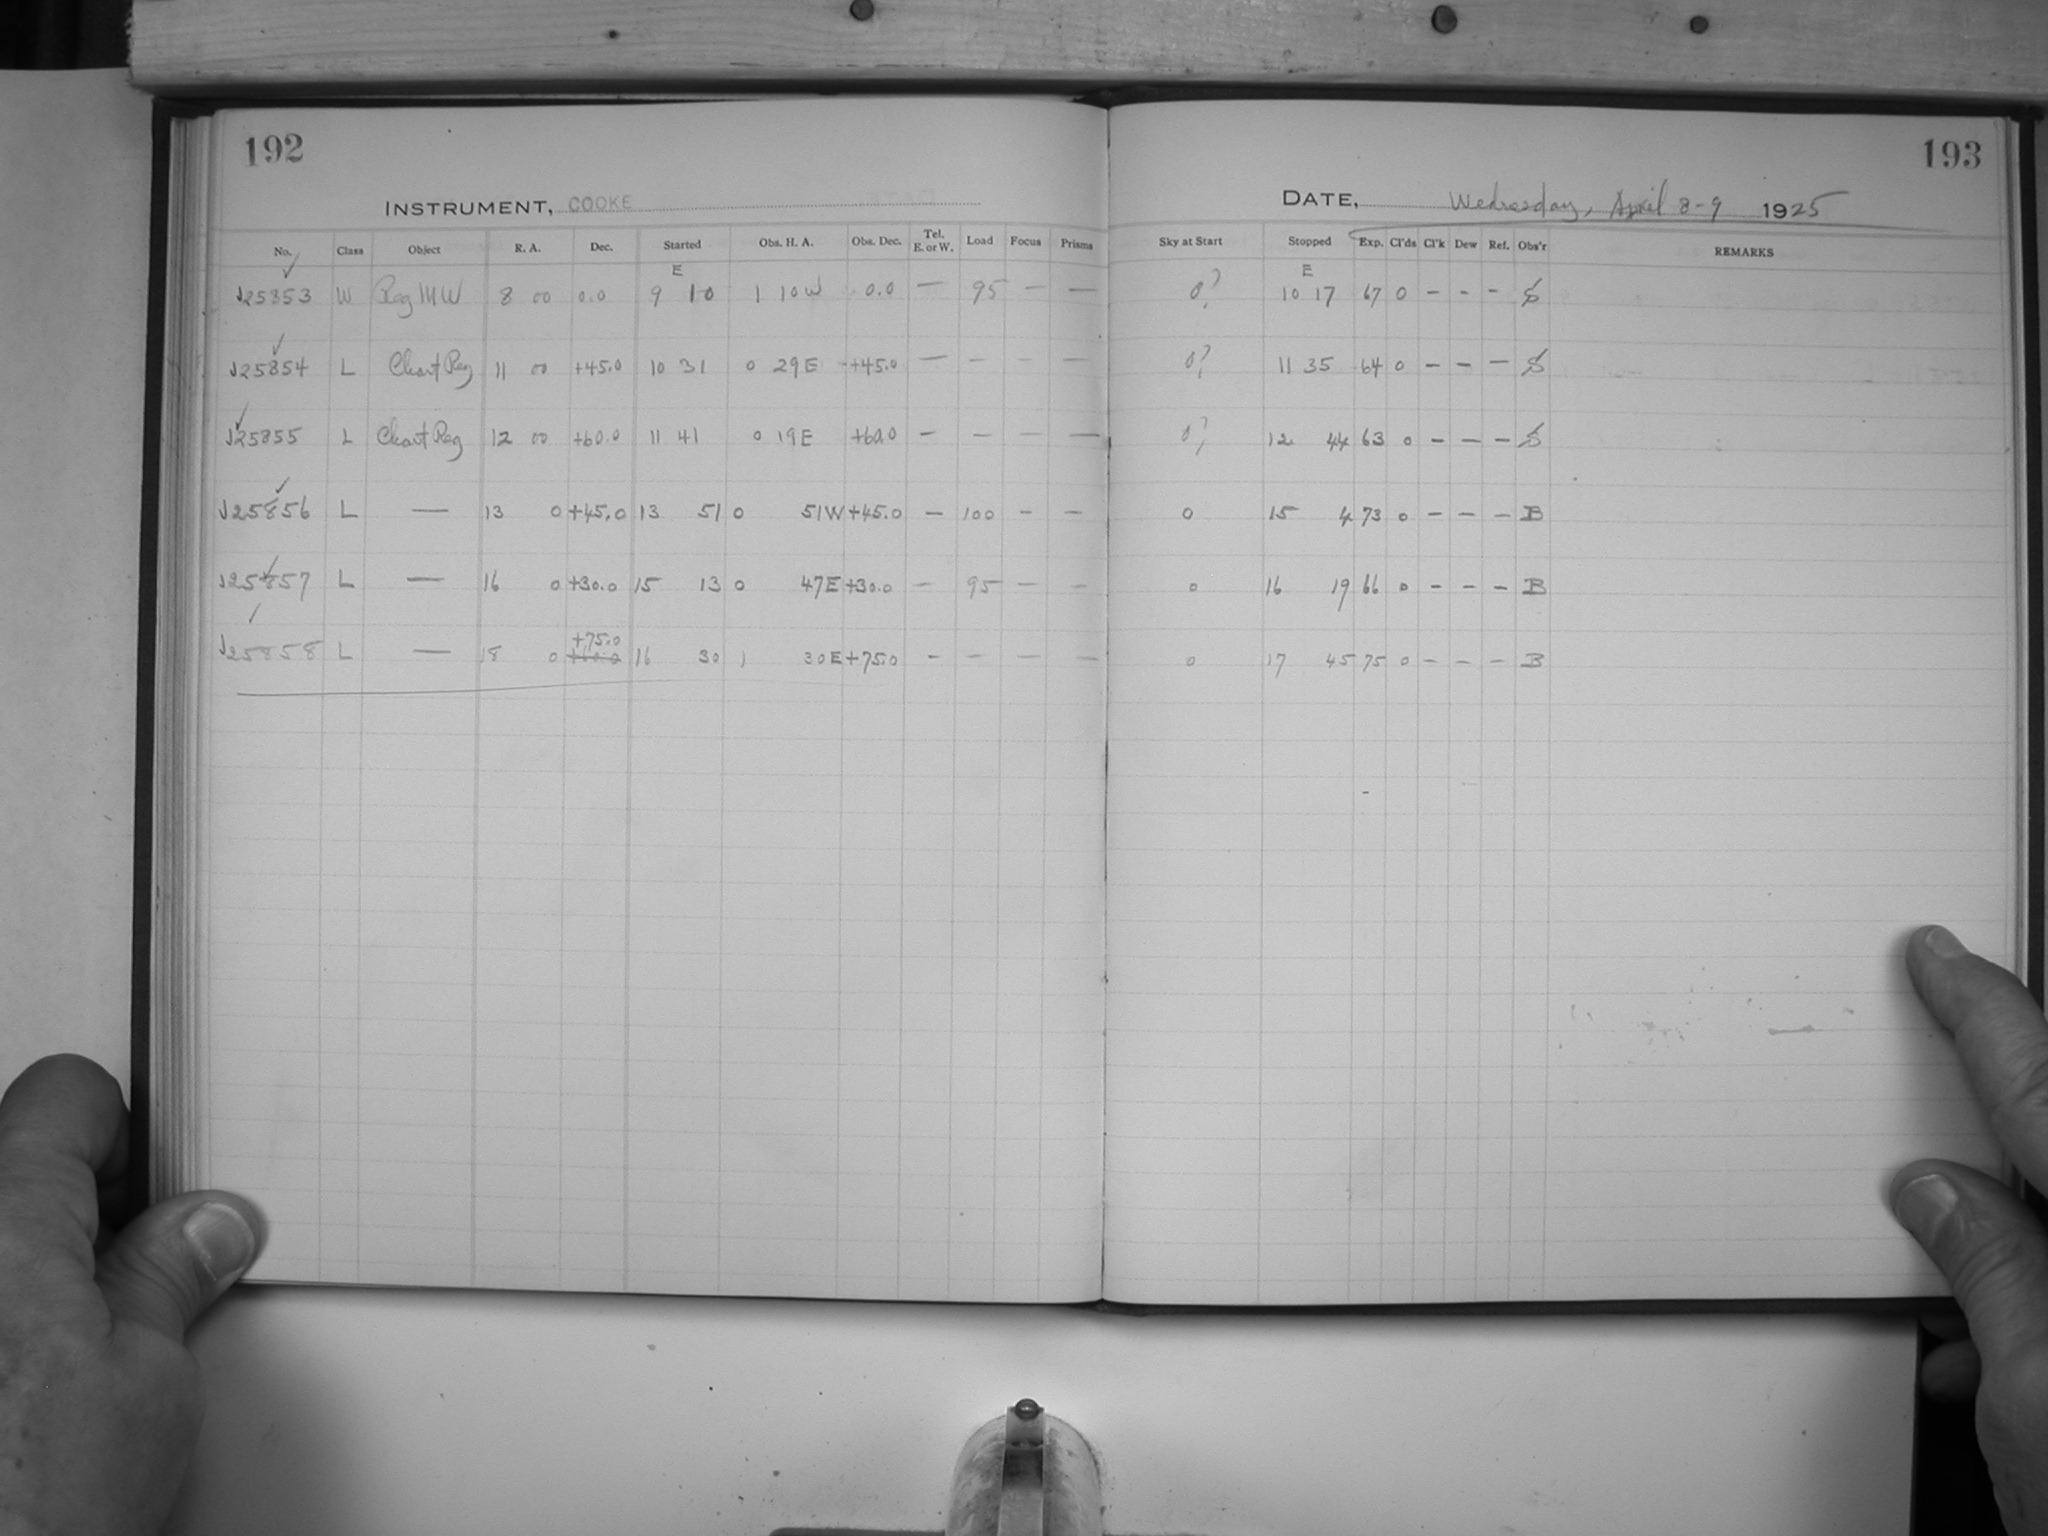 192
193
INSTRUMENT, COOKE
DATE, Wednesday, April 8-9 1925
No. Class Object R. A. Dec. Started Obs. H. A. Obs. Dec. Tel. E. or W. Load Focus Prisms Sky at Start Stopped Exp. Cl'ds Cl'k Dew Ref. Obs'r REMARKS
E E
J25853 W Reg MW 8 00 0.0 9 10 1 10W 0.0 — 95 — — 0? 10 17 67 0 - - - S
J25854 L Chart Reg 11 00 +45.0 10 31 0 29E +45.0 — — — — 0? 11 35 64 0 — — — S
J25855 L Chart Reg 12 00 +60.0 11 41 0 19E +60.0 — — — — 0? 12 44 63 0 — — — S
J25856 L — 13 0 +45.0 13 51 0 51W +45.0 — 100 — — 0 15 4 73 0 — — — B
J25857 L — 16 0 +30.0 15 13 0 47E +30.0 — 95 — — 0 16 19 66 0 — — — B
+75.0
J25858 L — 18 0 +60.0 16 30 1 30E +75.0 — — — — 0 17 45 75 0 — — — B